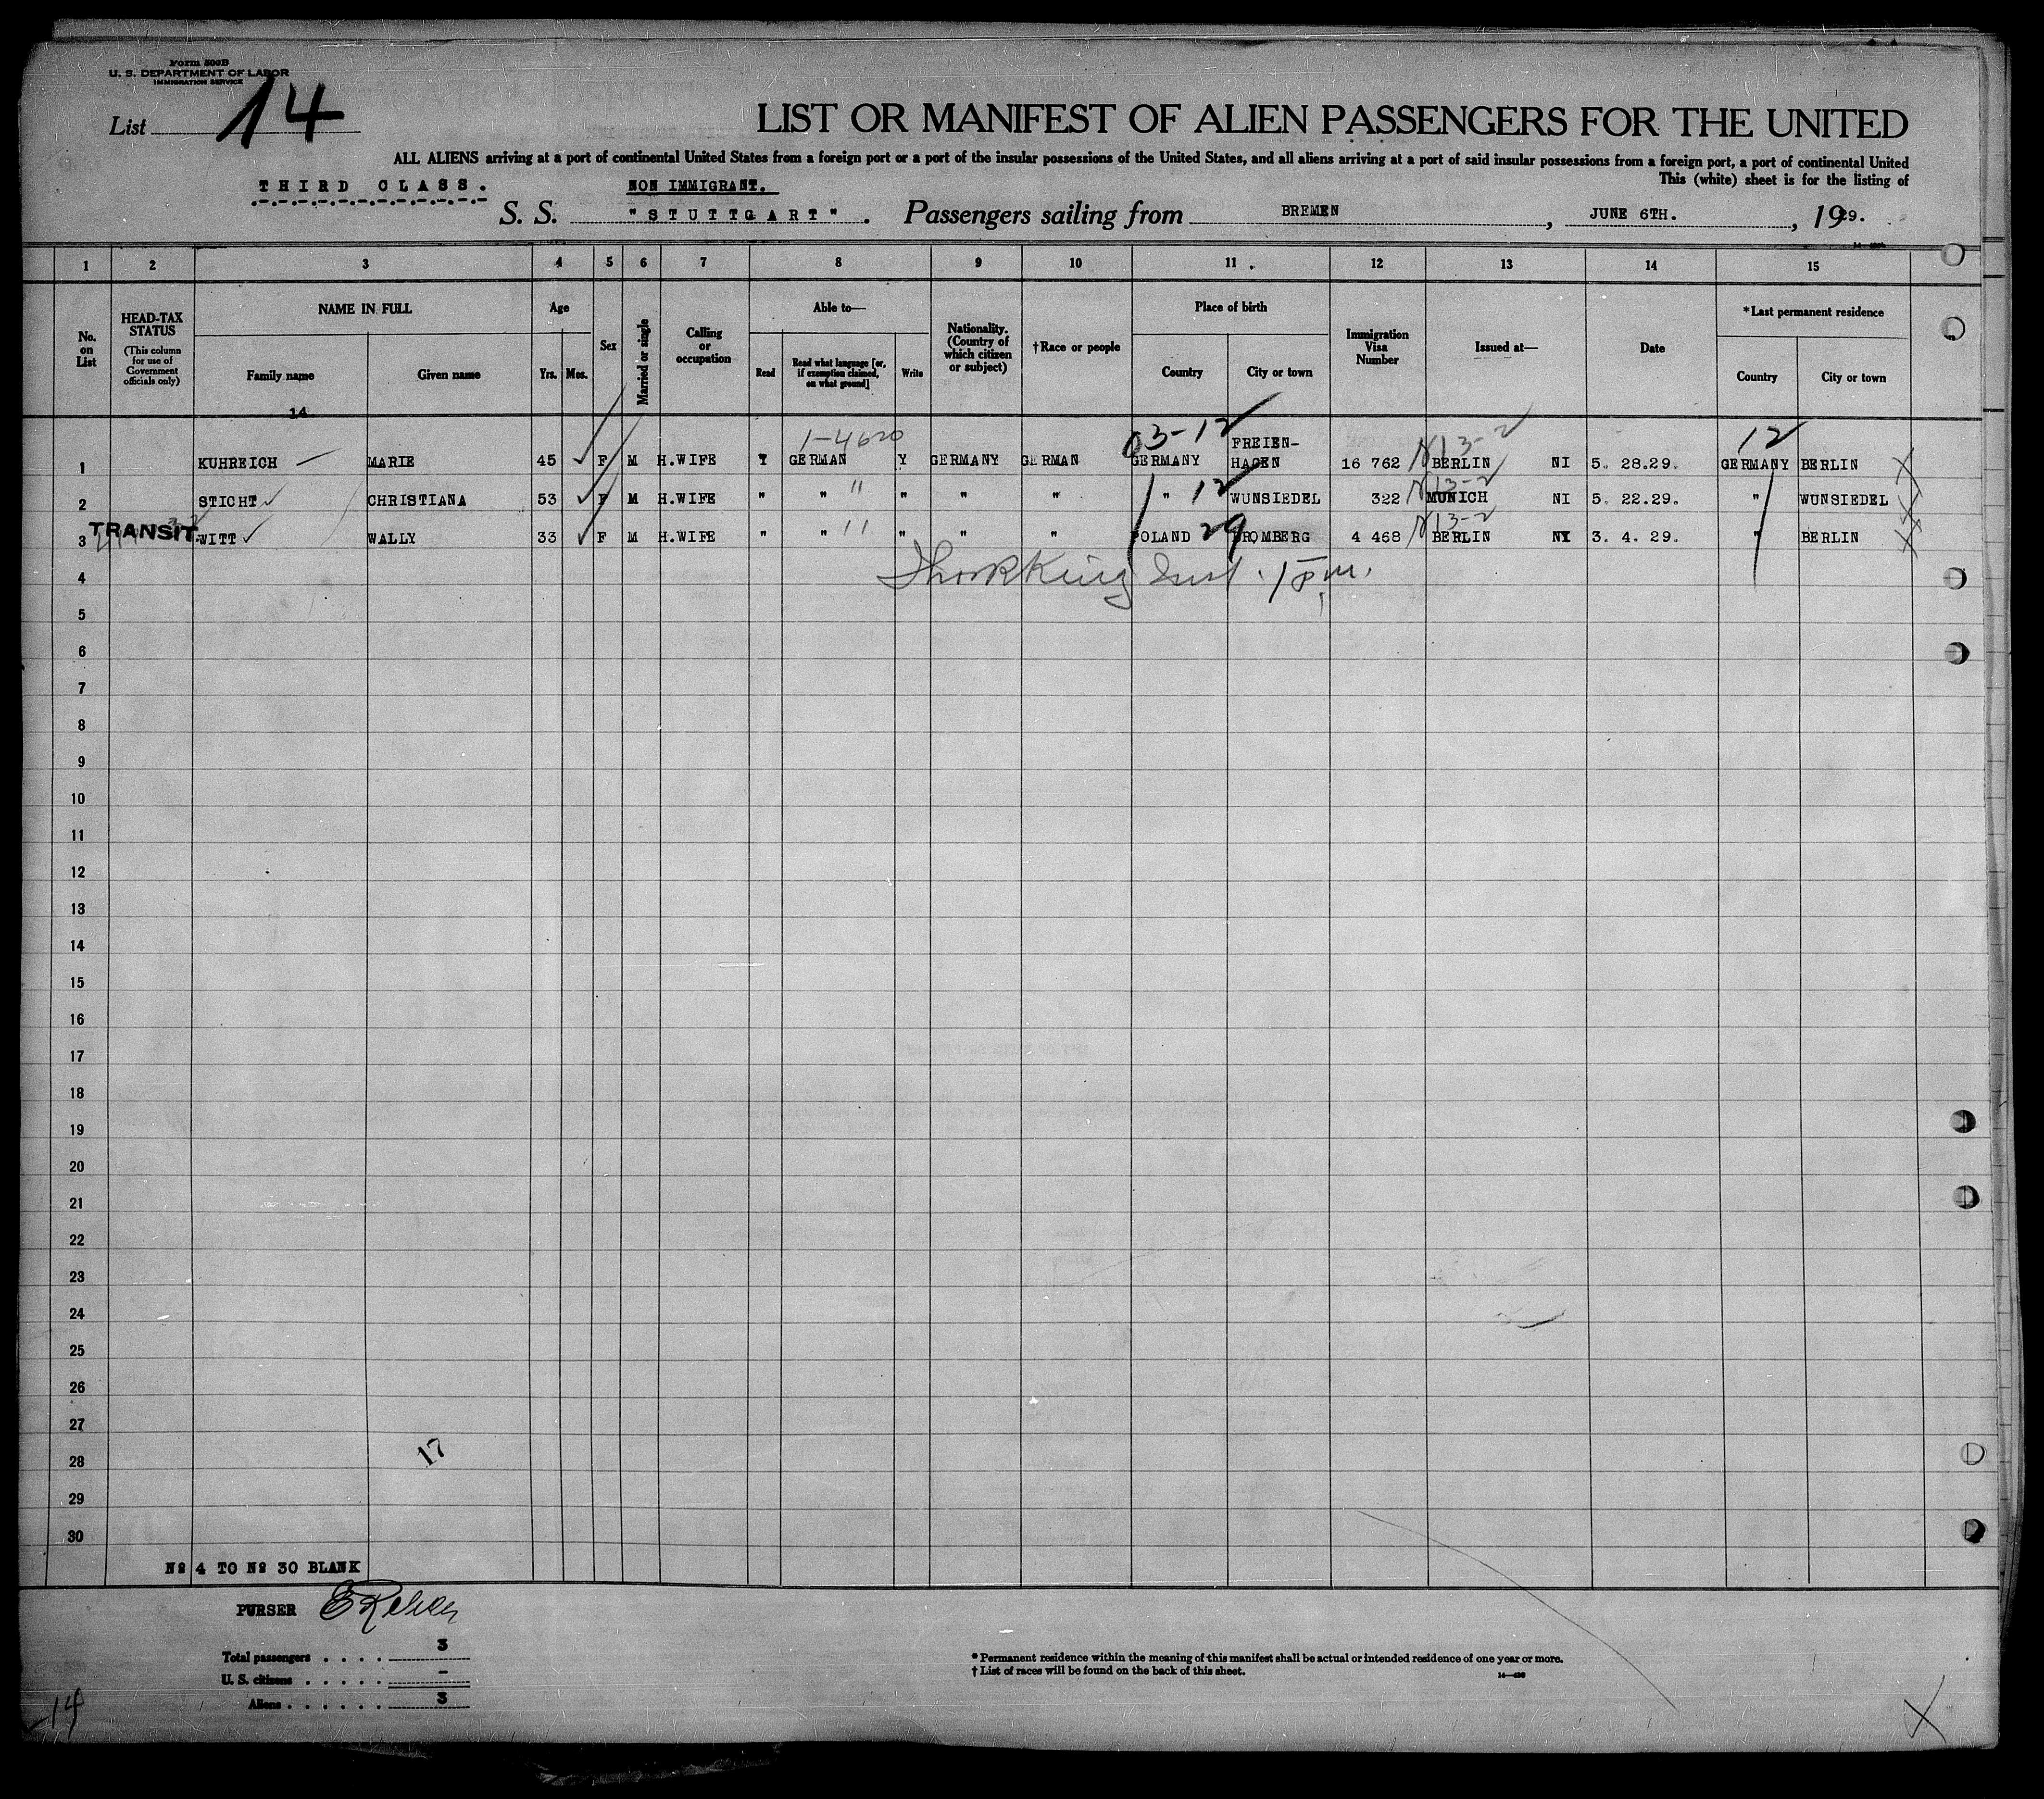 Form 500B
U. S. DEPARTMENT OF LABOR
IMMIGRATION SERVICE
List 14
LIST OR MANIFEST OF ALIEN PASSENGERS FOR THE UNITED
ALL ALIENS arriving at a port of continental United States from a foreign port or a port of the insular possessions of the United States, and all aliens arriving at a port of said insular possessions from a foreign port, a port of continental United
THIRD CLASS. NON IMMIGRANT. This (white) sheet is for the listing of
S. S. "STUTTGART". Passengers sailing from BREMEN, JUNE 6TH., 1929.
1 2 3 4 5 6 7 8 9 10 11 12 13 14 15
No. on List
HEAD-TAX STATUS
(This column for use of Government officials only)
NAME IN FULL
Family name
Given name
Age
Yrs. Mos.
Sex
Married or single
Calling or occupation
Able to—
Read
Read what language [or, if exemption claimed, on what ground]
Write
Nationality. (Country of which citizen or subject)
†Race or people
Place of birth
Country
City or town
Immigration Visa Number
Issued at—
Date
*Last permanent residence
Country
City or town
14
1-4620 03-12 12
1 KUHREICH MARIE 45 F M H.WIFE Y GERMAN Y GERMANY GERMAN GERMANY FREIEN-HAGEN 16 762 N13-2 BERLIN NI 5. 28.29. GERMANY BERLIN X
2 STICHT CHRISTIANA 53 F M H.WIFE " " " " " " " 12 WUNSIEDEL 322 N13-2 MUNICH NI 5. 22.29. " WUNSIEDEL X
TRANSIT
3 WITT WALLY 33 F M H.WIFE " " 11 " " " POLAND 29 BROMBERG 4 468 N13-2 BERLIN NI 3. 4. 29. " BERLIN X
4
5
6
7
8
9
10
11
12
13
14
15
16
17
18
19
20
21
22
23
24
25
26
27
28
29
30
17
No 4 TO No 30 BLANK
PURSER
Total passengers . . . . 3
U. S. citizens . . . . . –
Aliens . . . . . . 3
* Permanent residence within the meaning of this manifest shall be actual or intended residence of one year or more.
† List of races will be found on the back of this sheet.
14
X